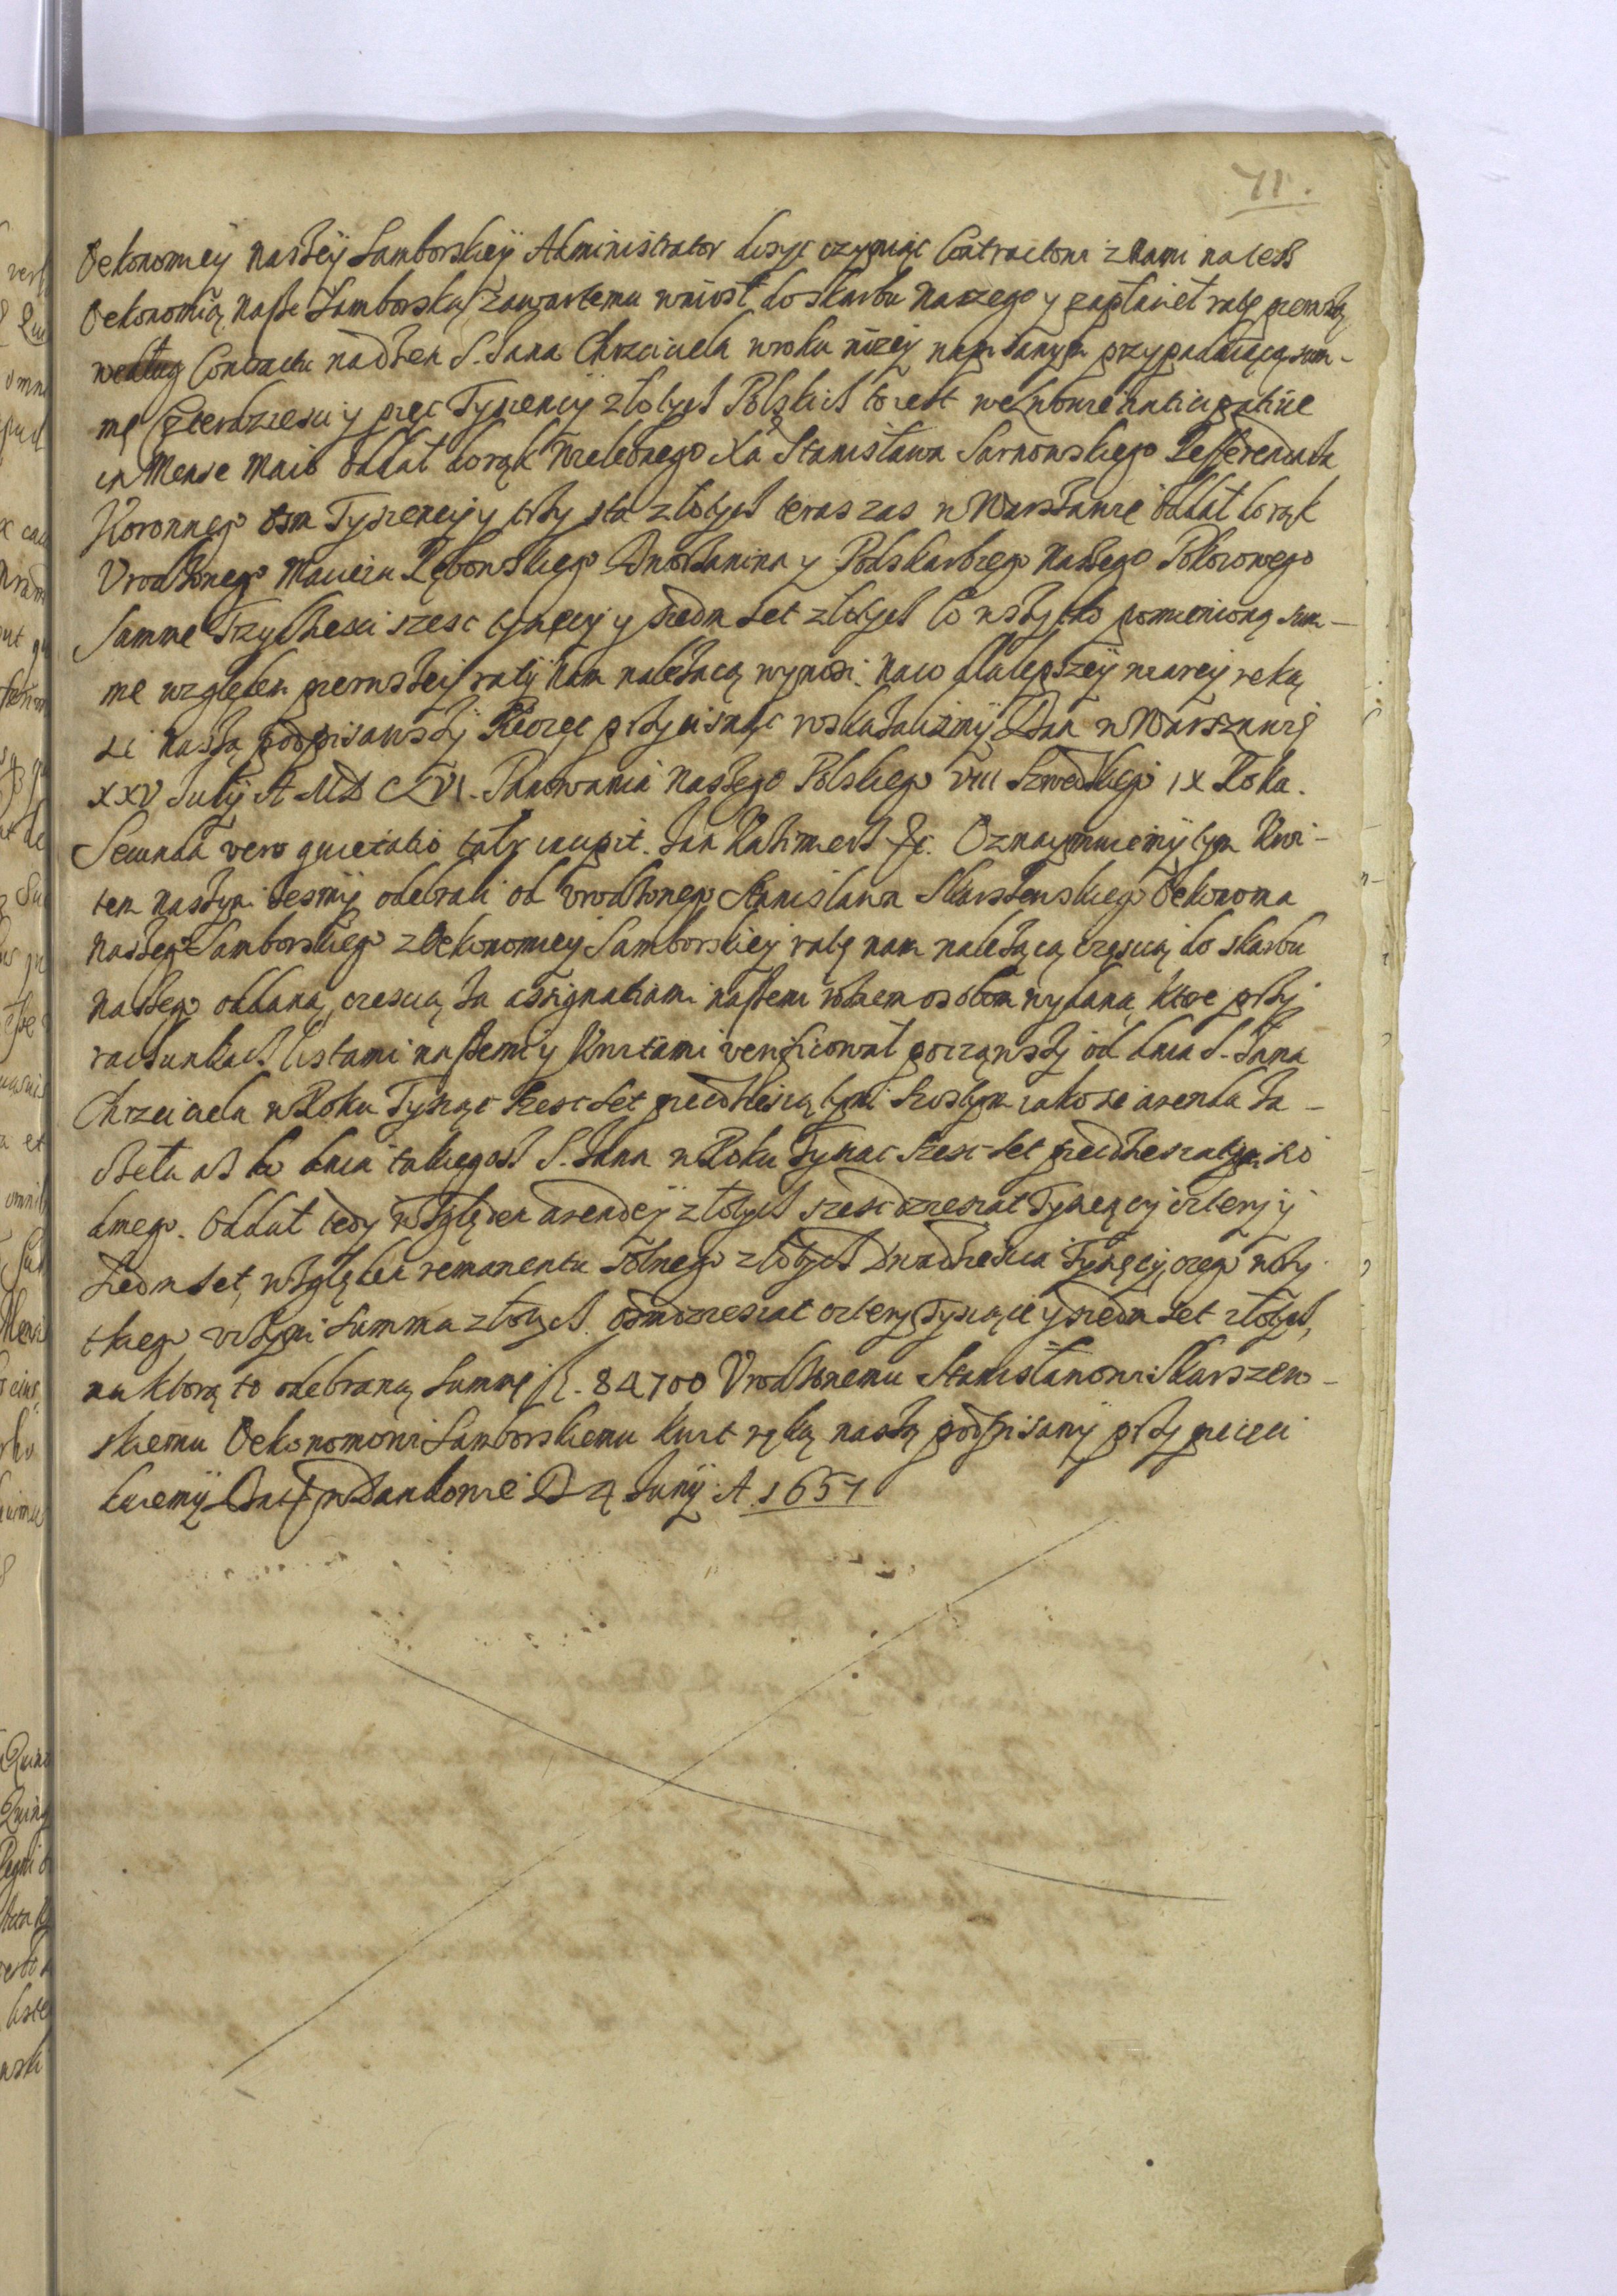 71.
Oekonomiey naszey Samborskiey Administrator dosyc czyniąc Contractowi z Nami na tesz
Oekonomią nasze Samborską zawartemu wniosł do skarbu naszego y zapłacieł ratę pierwszą
według Contractu na dzien S. Jana Chrzciciela w roku nizey napisanym przypadaiącą sum-
mę Czterdziesci y pięc Tysięcy złotych Polskich to iest we Lwowie anticipative
in Mense Maio oddał do rąk Wielebnego Xa Stanisława Sarnowskiego Refferendarza
Koronnego osm Tysięcy y trzy sta złotych teras zas w Warszawie oddał do rąk
Urodzonego Macieia Dworzanina y Podskarbiego naszego Pokoiowego
Summe Trzydziesci szesc tysięcy y siedm set złotych co wszytko pomienioną sum-
me względem pierwszey raty nam należacą wynosi. na co dla lepszey wiary ręką
się naszą podpisawszy Pieczęc przycisnąc roskazalismy Dan w Warszawie
XXV Julij A MDCLVI. Panowania naszego Polskiego VIII Szwedzkiego IX Roku.
Secunda vero quietatio taliter incipit. Jan Kazimierz &c. Oznaymuiemy tym Kwi-
tem naszym iesmy odebrali od Urodzonego Stanisława Skarszewskiego Oekonoma
naszego Samborskiego z Oekonomiey Samborskiey ratę nam należącą częscią do skarbu
naszego oddaną, czescią za assignatiami naszemi roznem osobom wydaną, ktore przy
rachunkach listami naszemi y Kwitami verificował począwszy od dnia S. Jana
Chrzciciela w Roku Tysiąc szescset piecdziesią tym szostym iako się arenda za-
częła asz do dnia takiegosz S. Jana w Roku Tysiac szesc set piecdziesiatym sio
dmego. Oddał tedy względem arendy złotych szescdziesiat Tysięcy cztery y
siedm set, względem remanentu solnego złotych dwadziescia Tysięcy, czego wszy
tkiego uczyni summa złotych osmdziesiat cztery Tysiące y siedm set złotych,
na ktorą to odebraną summę fl. 84700 Urodzonemu Stanisławowi Skarszew-
skiemu Oekonomowi Samborskiemu kwit ręką naszą podpisany przy pieczęci
daiemy. Dat w Dankowie D 4 Juny A 1657